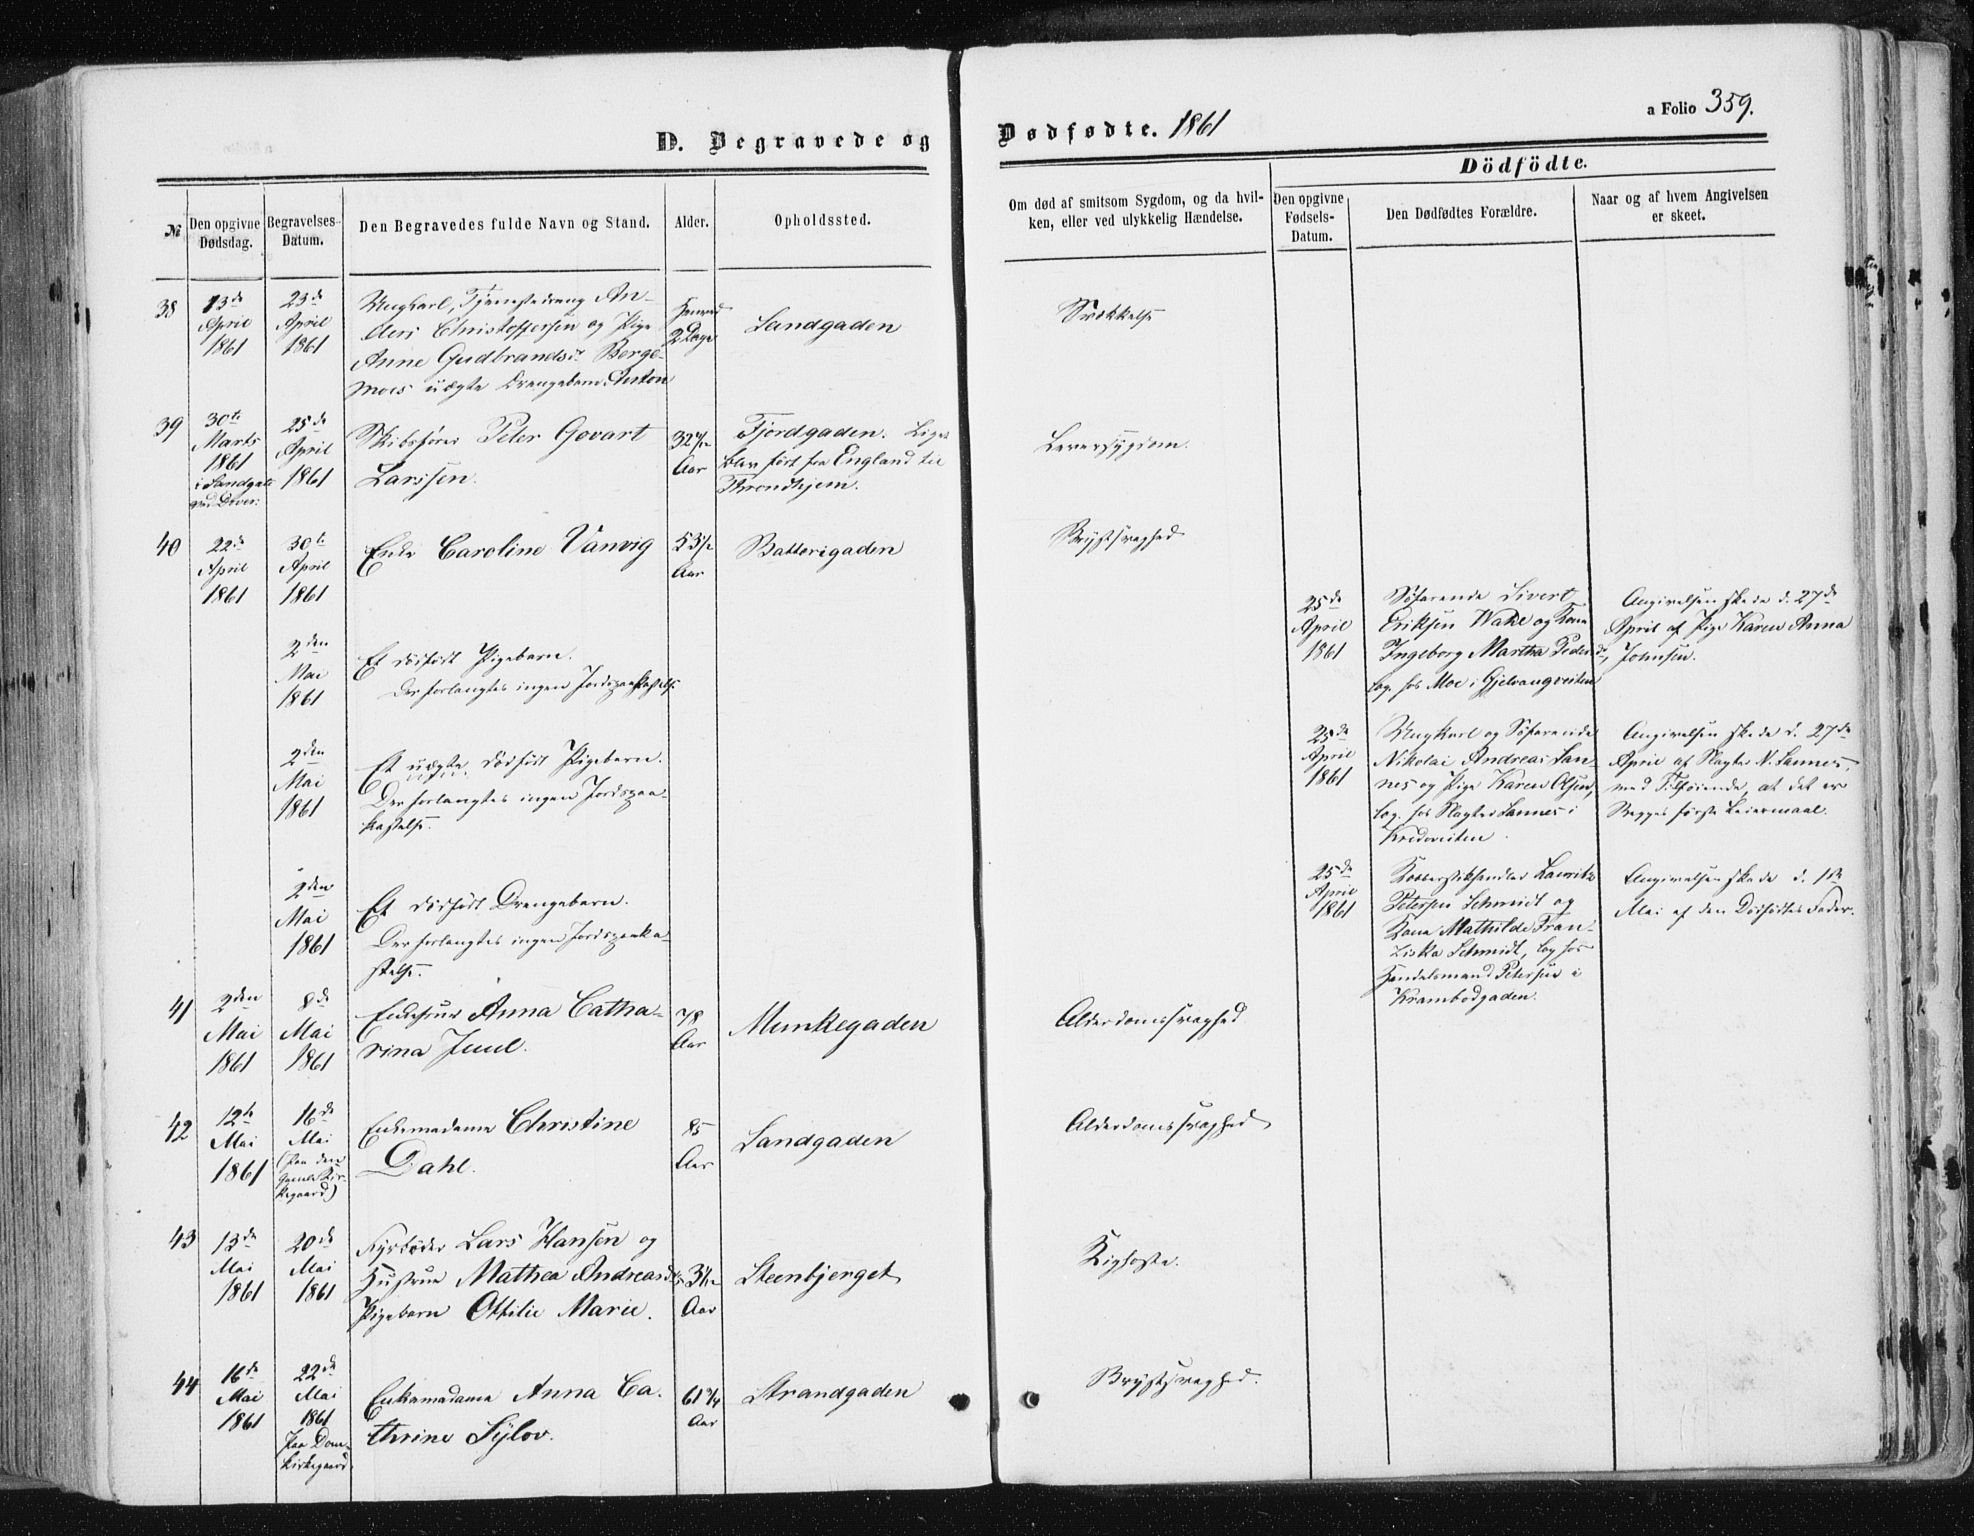 D. Begravede og Dødfødte. 1861
a Folio 359.
№
Den opgivne Dødsdag.
Begravelses-Datum.
Den Begravedes fulde Navn og Stand.
Alder.
Opholdssted.
Om død af smitsom Sygdom, og da hvil-
ken, eller ved ulykkelig Hændelse.
Dödfödte.
Den opgivne Fødsels-Datum.
Den Dødfødtes Forældre.
Naar og af hvem Angivelsen
er skeet.
38
13de April 1861
23de April 1861
Ungkarl, Tjenestedreng An-
ders Christoffersen og Pige
Anne Gudbrandsd. Berge-
moes uægte Drengebarn Anton
2 Dage
Sandgaden
Svækkelse
39
30te Marts 1861 i Sandgate ved Dover.
25de April 1861
Skibsfører Peter Govart
Larssen.
32 Aar
Fjordgaden. Liget
blev ført fra England til
Throndhjem.
Leversygdom.
40
22de April 1861
30te April 1861
Enke Caroline Vanvig
53 1/2 Aar
Batterigaden
Brystsvaghed
2den Mai 1861
Et dødfødt Pigebarn.
Der forlangtes ingen Jordspaakastelse
25de April 1861
Søfarende Sivert
Eriksen Wake og Kone
Ingeborg Martha Pedersd.,
log. hos Moe i Gjelvangveiten
Angivelsen skede d. 27de
April af Pige Karen Anna
Johnsen.
2den Mai 1861
Et uægte dødfødt Pigebarn.
Der forlangtes ingen Jordspaa-
kastelse.
25de April 1861
Ungkarl og Søfarende
Nikolai Andreas San-
nes og Pige Karen Olsen,
log. hos Slagter Sannes i
Kredsveiten
Angivelsen skede d. 27de
April af Slagter N. Sannes,
med Tilføiende, at det er
Begges første Leiermaal.
2den Mai 1861
Et dødfødt Drengebarn.
Der forlangtes ingen Jordspaaka-
stelse.
25de April 1861
Kobberstikhandler Lauritz
Petersen Schmidt og
Kone Mathilde Fran-
ziska Schmidt, log. hos
Handelsmand Petersen i
Krambodgaden.
Angivelsen skede d. 1ste
Mai af den Dødfødtes Fader.
41
2den Mai 1861
8de Mai 1861
Enkefrue Anna Catha-
rina Juul.
78 Aar
Munkegaden
Alderdomssvaghed
42
12te Mai 1861
16de Mai (Paa den gamle Kirkegaard)
Enkemadame Christine
Dahl.
85 Aar
Sandgaden
Alderdomssvaghed
43
13de Mai 1861
20de Mai 1861
Fyrbøder Lars Hansen og
Hustrue Mathea Andreasd.
Pigebarn Ottilie Marie.
3 1/2 Aar
Steenbjerget
Kighoste.
44
16de Mai 1861
22de Mai 1861 paa Dom-kirkegaard
Enkemadame Anna Ca-
thrine Sylov.
61 3/4 Aar
Strandgaden
Brystsvaghed.